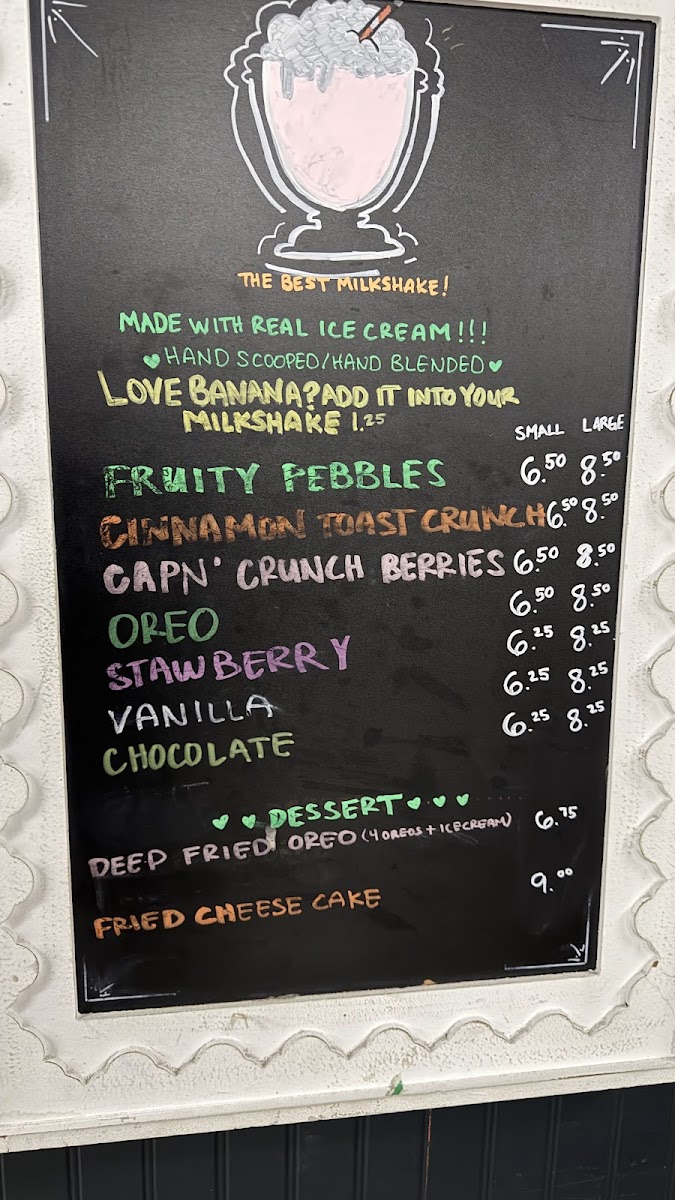 THE BEST MILKSHAKE!
MADE WITH REAL ICE CREAM!!!
♥HAND SCOOPED/HAND BLENDED♥
LOVE BANANA? ADD IT INTO YOUR
MILKSHAKE 1.25
SMALL LARGE
FRUITY PEBBLES 6.50 8.50
CINNAMON TOAST CRUNCH 6.50 8.50
CAPN' CRUNCH BERRIES 6.50 8.50
OREO 6.50 8.50
STAWBERRY 6.25 8.25
VANILLA 6.25 8.25
CHOCOLATE 6.25 8.25
♥ ♥ DESSERT ♥ ♥ ♥
DEEP FRIED OREO (4 OREOS + ICE CREAM) 6.75
FRIED CHEESE CAKE 9.00